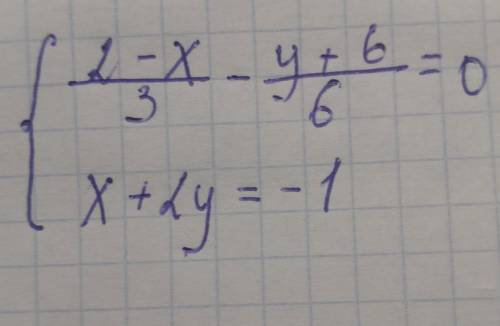 { (2 - x)/3 - (y + 6)/6 = 0
x + 2y = -1